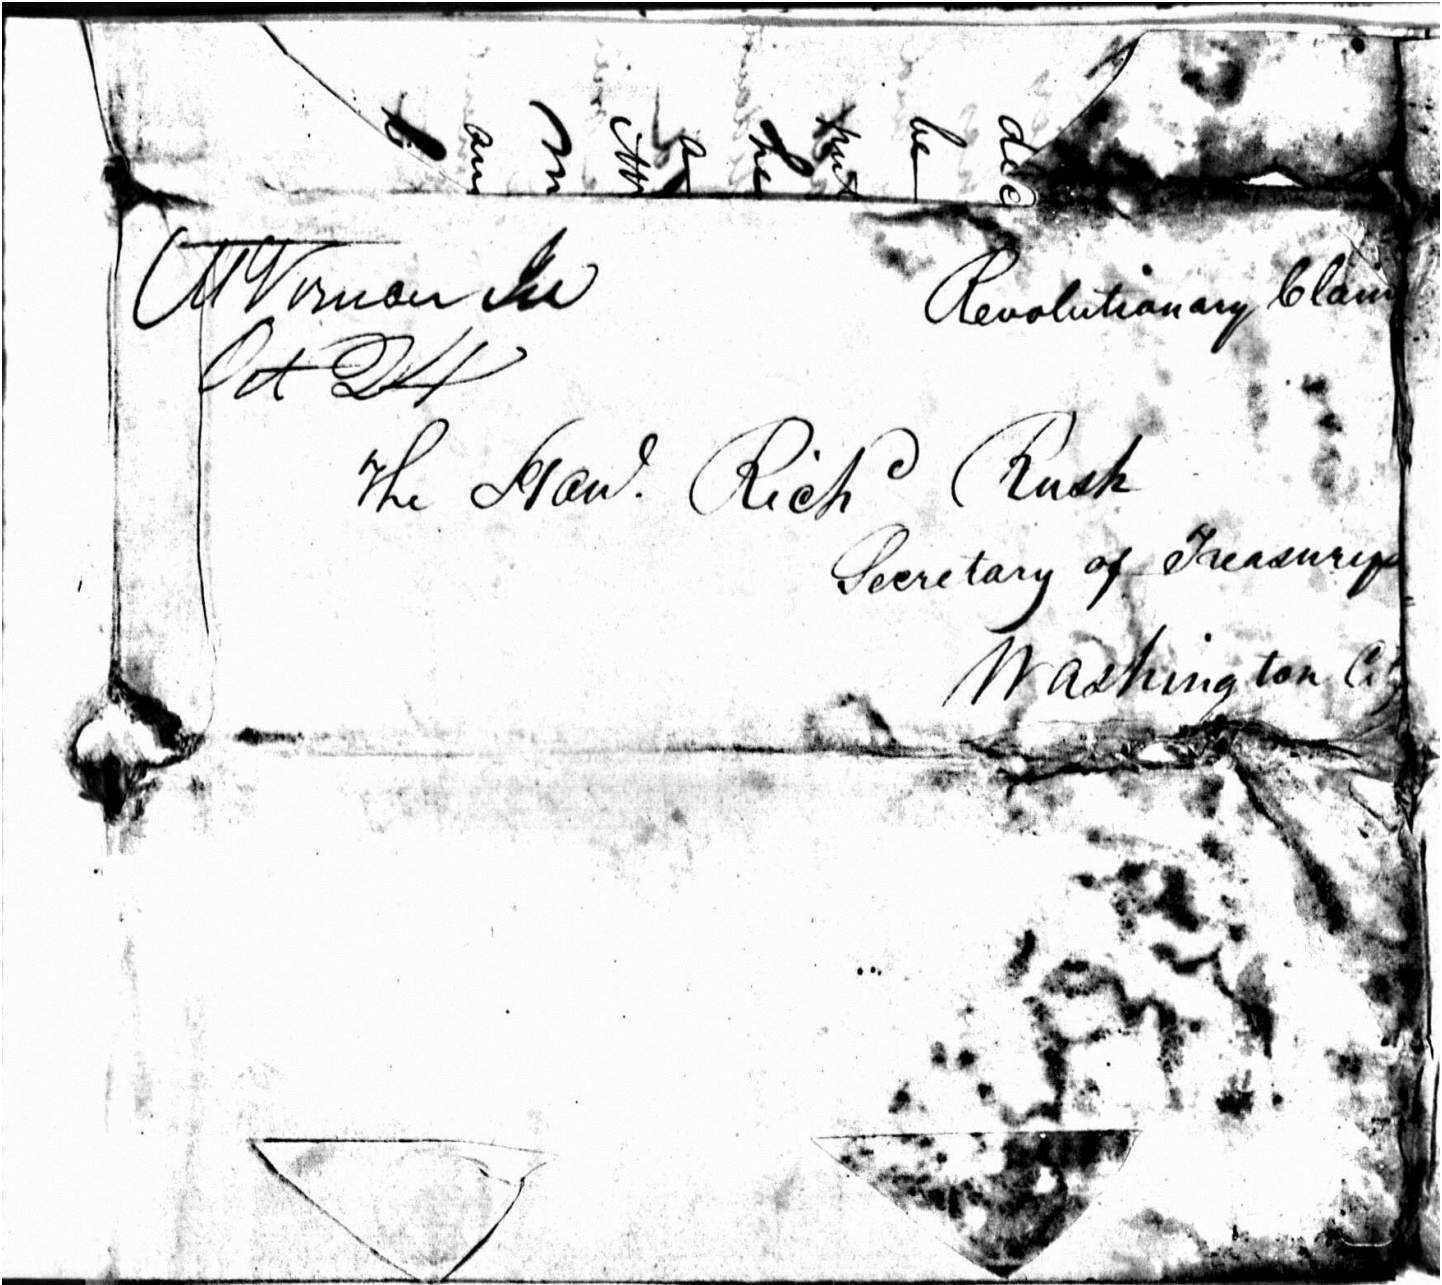 Mt Vernon
Oct 24
Revolutionary Claim
The Hon. Richd Rush
Secretary of Treasury
Washington City
am
a
be